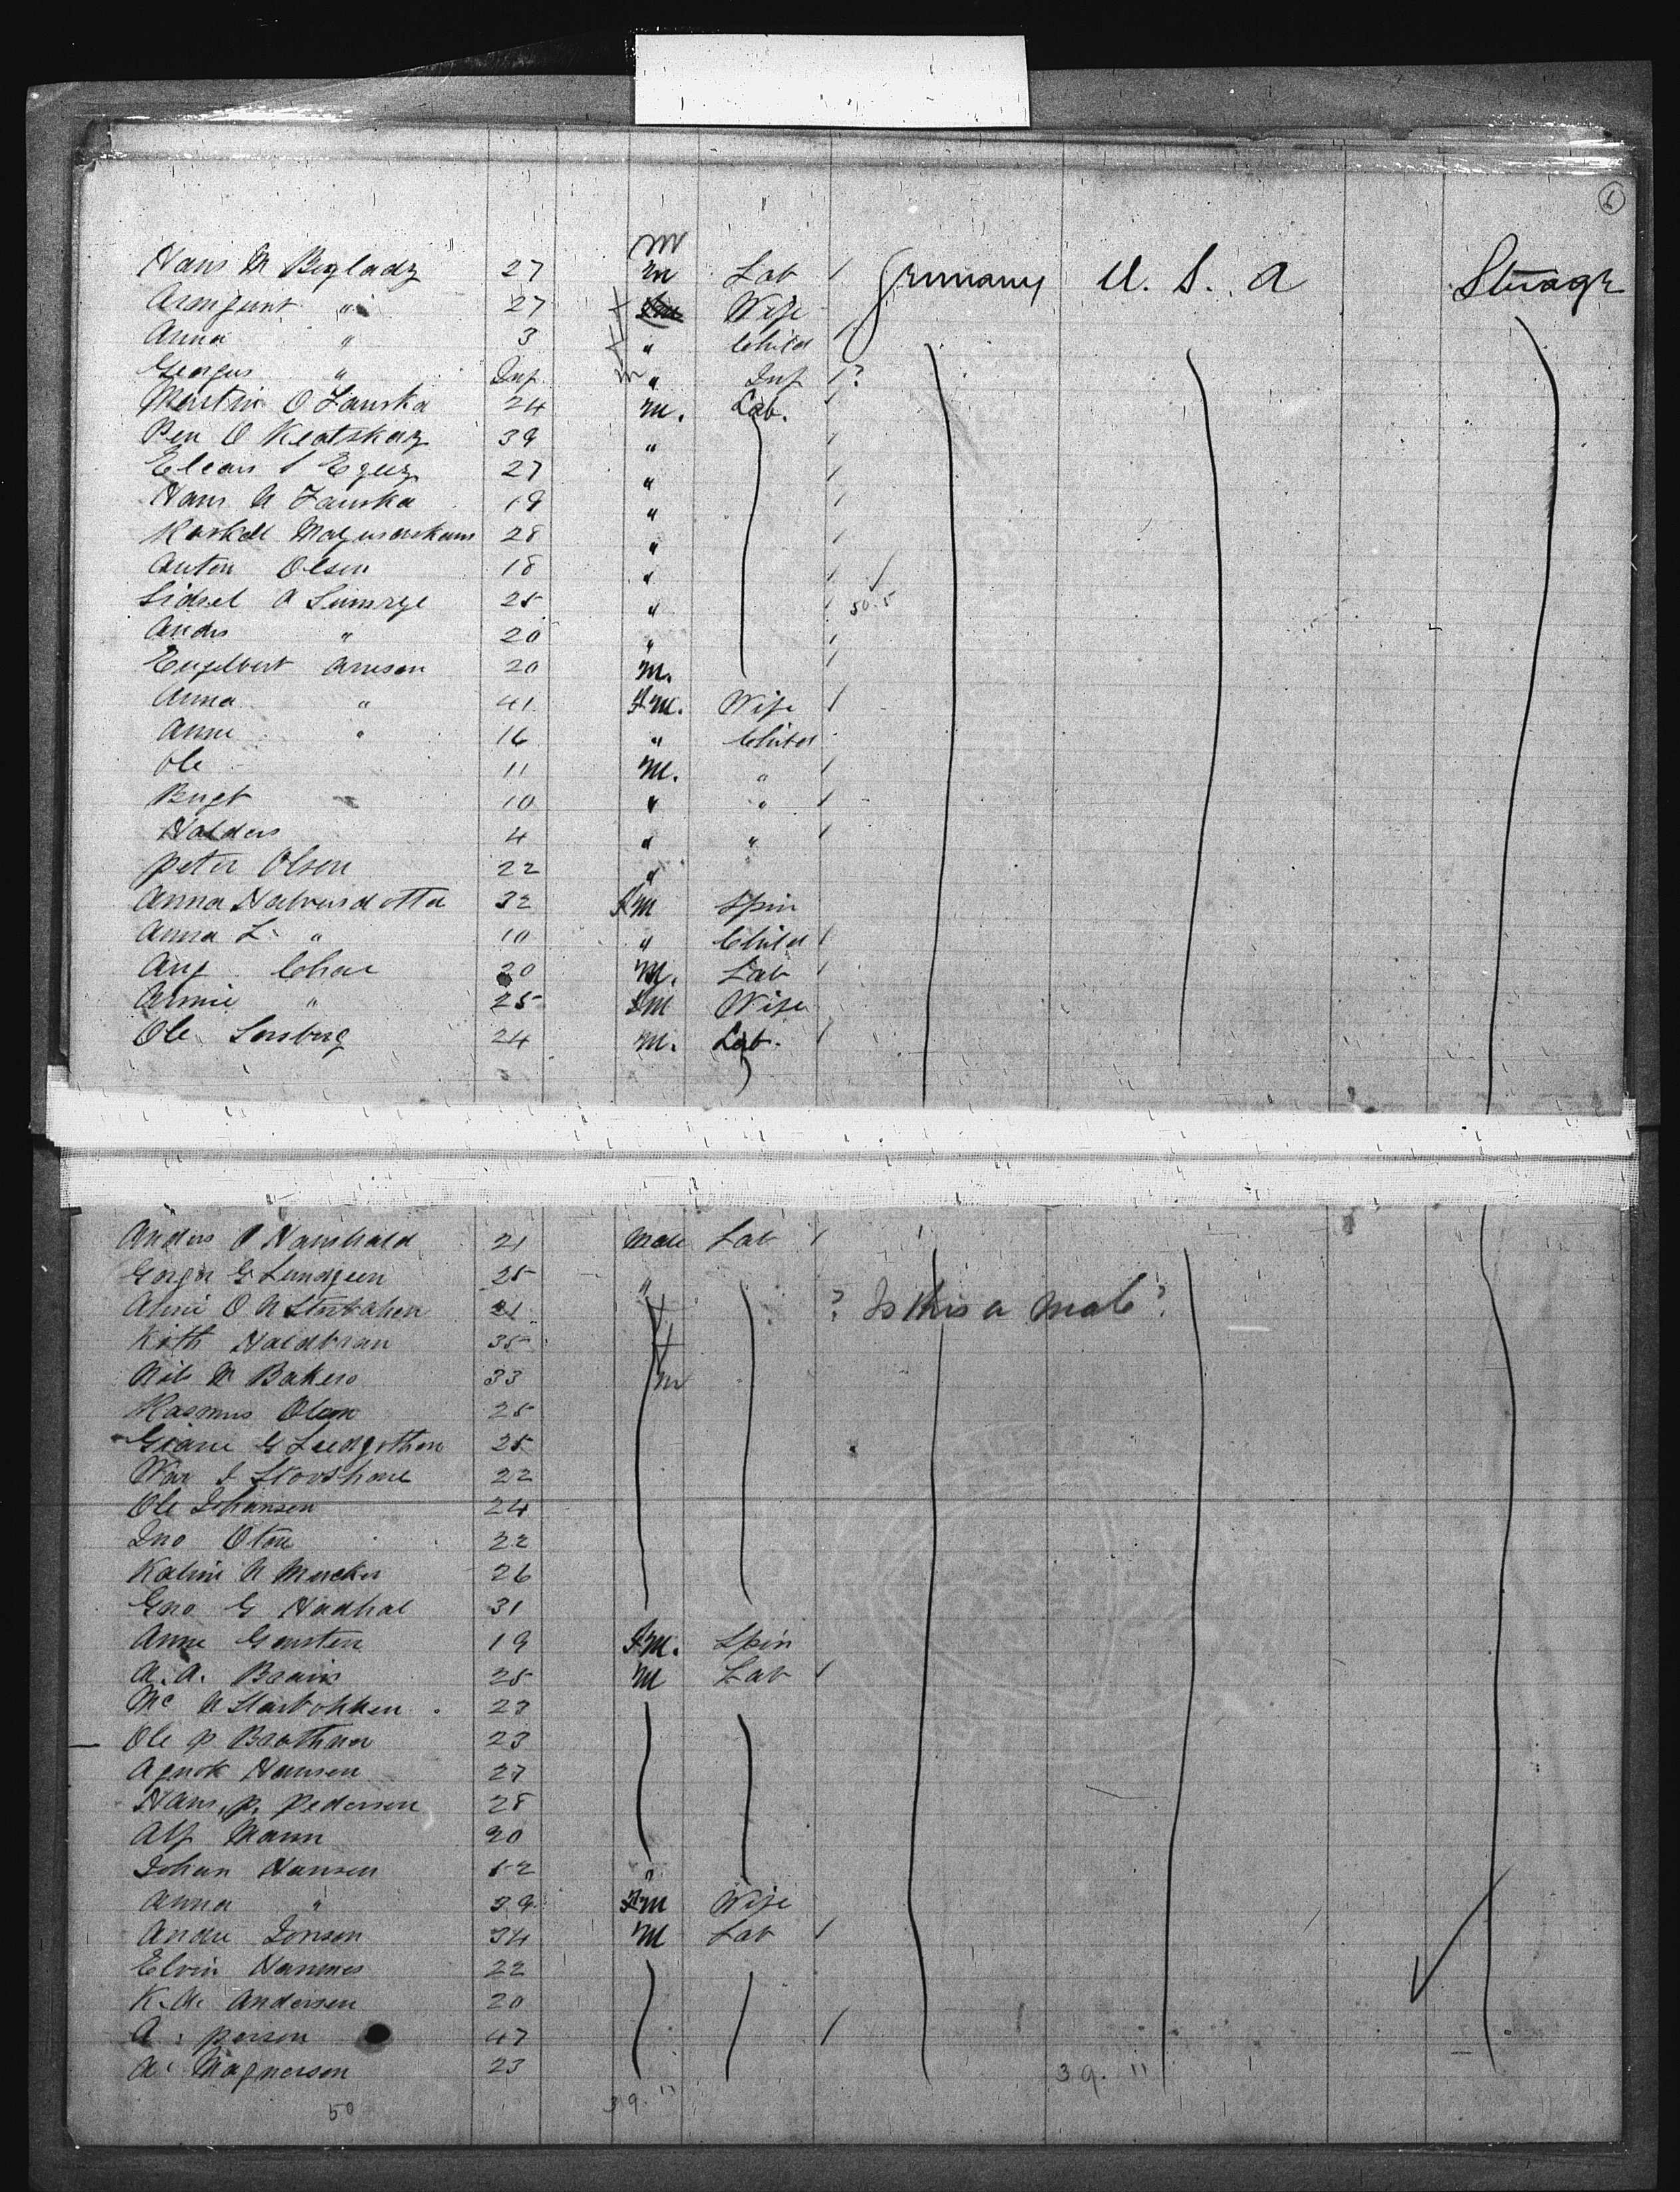 6
m
Hans N Bigladz 27 m Lab / Germany U. S. A Sterage
Armgunt " 27 Wife
Anna " 3 " Child /
Georgus " Inf m " Inf / ?
Martin O Lanska 24 m. Lab.
Pen O Keatskaz 39 " /
Elean S Eguz 27 " /
Hans N Lanska 19 " /
Kaskell Magusonkam 28 " /
Anton Olsen 18 " /
Sidsel A Simsrge 25 " / 50.5
Andrs " 20 " /
Engelbert Arneson 20 m. /
Anna " 41 Fm. Wife /
Anne " 16 " Child
Ole 11 m. " /
Bugt 10 " " /
Halders 4 " " /
Peter Olson 22 "
Anna Halvorsdotta 32 Fm Spin
Anna L. " 10 " Child /
Aug Cohae 20 m. Lab /
Annie " 25 Fm Wife
Ole Sorsberg 24 m. Lab. /
Anders O Hanshald 21 Male Lab /
Gorgn G Lundgeen 25 "
Annie O N Starkahen 21 ? Is this a male?
Kith Haldbran 35
Nils N Bakero 33 m
Rasmus Olson 25
Giane G Leedgothen 25
War I Stovshane 22
Ole Johansen 24
Jno Oton 22
Katrine N Mecker 26
Gno G Hadhal 31
Anne Gunsten 19 Fm. Spin
A. A. Brain 25 M Lab /
Mc N Starbokken 23
Ole P Brothner 23
Agnok Hansen 27
Hans. P. Pedersen 28
Alf Mann 20
Johan Hansen 52 "
Anna " 39 Fm Wife
Andre Jonson 34 M Lab /
Elvin Hammes 22
K. A. Andersen 20
A. Person 47 /
A. Magnerson 23
50 39. 11 39. 11